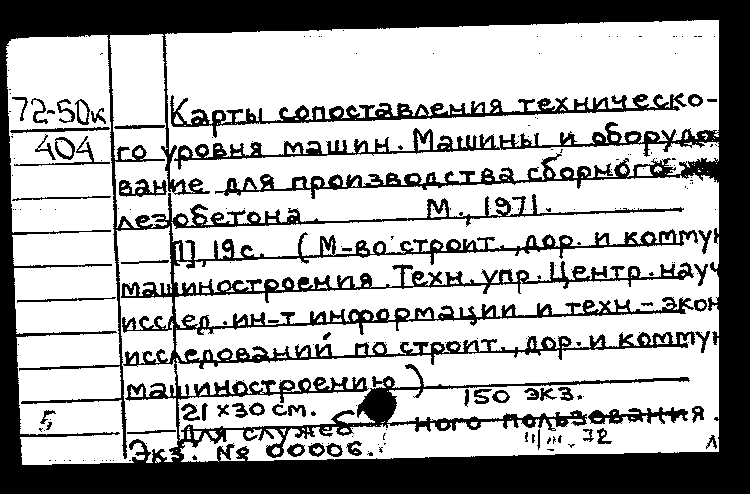 72-50к Карты сопоставления техническо-
404 го уровня машин. Машины и оборудо
вание для производства сборного
лезобетона. М., 1971.
[1], 19с. (М-во строит., дор. и коммун
машиностроения. Техн. упр. Центр. науч
исслед. ин-т информации и техн.-экон
исследований по строит., дор. и коммун
машиностроению).
21 х 30 см. 150 экз.
5 Для служеб ного пользования.
Экз. № 00006. 72